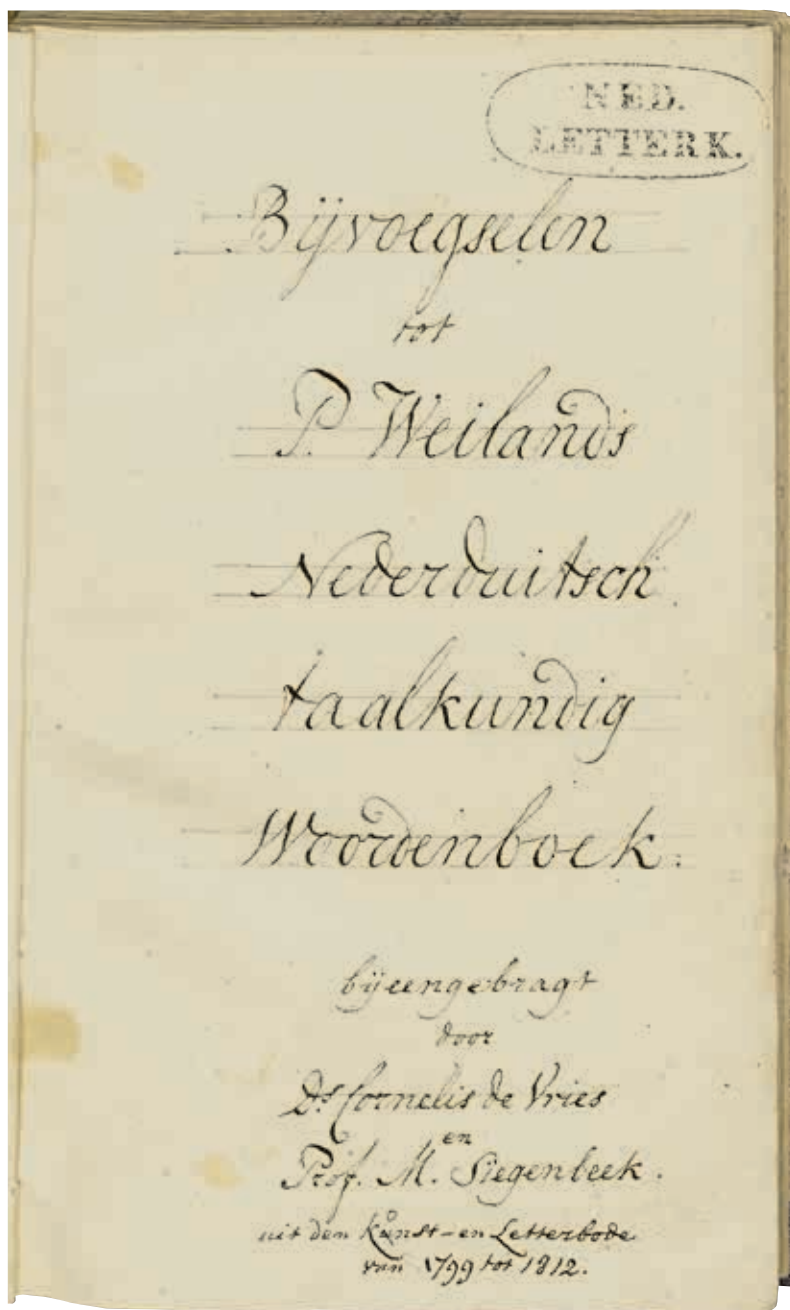 NED.
LETTERK.
Bijvoegselen
tot
P. Weilands
Nederduitsch
taalkundig
Woordenboek.
bijeengebragt
door
Ds. Cornelis de Vries
en
Prof. M. Siegenbeek.
uit den Kunst- en Letterbode
van 1799 tot 1812.